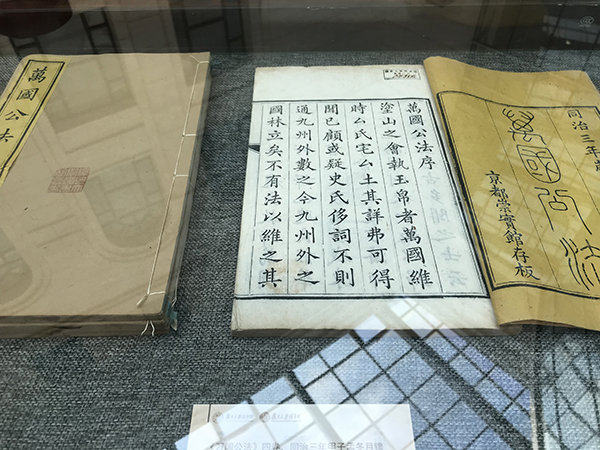 萬國公法
萬國公法序
塗山之會執玉帛者萬國維
時厶氏宅厶土其詳弗可得
聞已顧或疑史氏侈詞不則
通九州外數之今九州外之
國林立矣不有法以維之其
同治三年歲
萬國公法
京都崇實館存板
《万国公法》四卷，同治三年